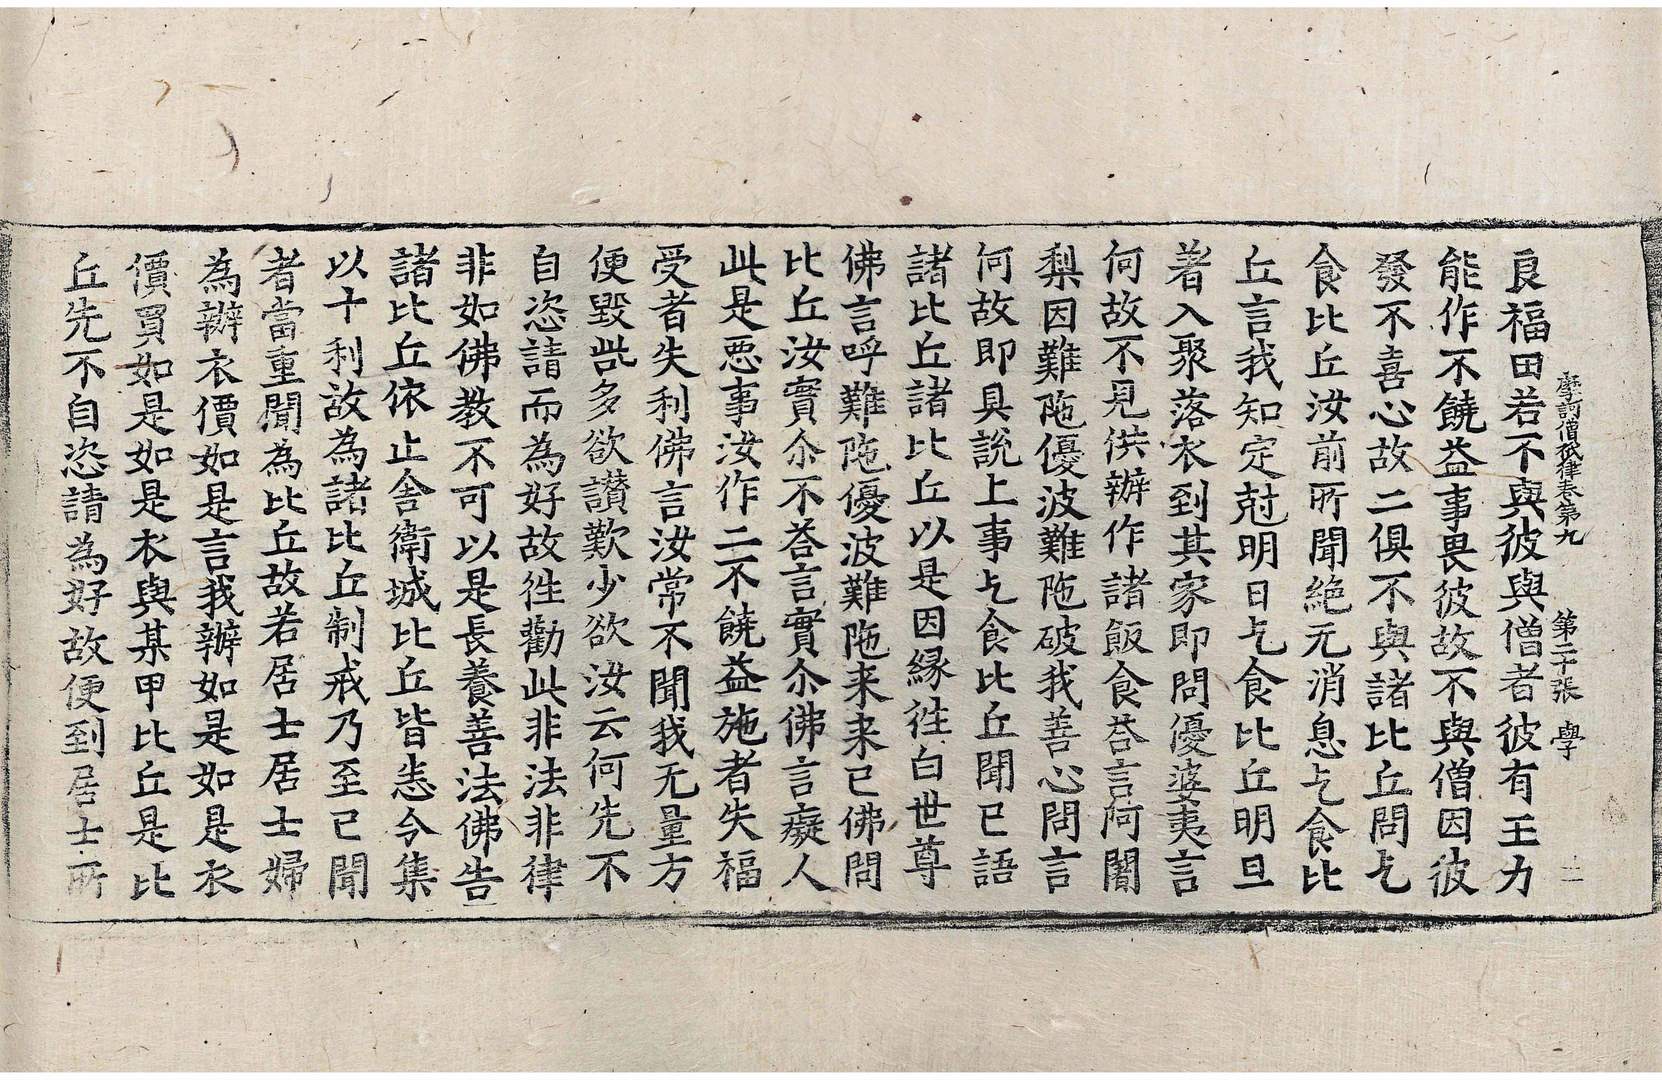 摩訶僧祇律卷第九 第二十張 學
良福田若不與彼與僧者彼有王力
能作不饒益事畏彼故不與僧因彼
發不喜心故二俱不與諸比丘問乞
食比丘汝前所聞絶无消息乞食比
丘言我知定尅明日乞食比丘明旦
著入聚落衣到其家即問優婆夷言
何故不見供辦作諸飯食荅言阿闍
梨因難陁優波難陁破我善心問言
何故即具說上事乞食比丘聞已語
諸比丘諸比丘以是因緣往白世尊
佛言呼難陁優波難陁来来已佛問
比丘汝實尒不荅言實尒佛言癡人
此是惡事汝作二不饒益施者失福
受者失利佛言汝常不聞我无量方
便毀呰多欲讃歎少欲汝云何先不
自恣請而為好故往勸此非法非律
非如佛教不可以是長養善法佛告
諸比丘依止舍衛城比丘皆悉令集
以十利故為諸比丘制戒乃至已聞
者當重聞為比丘故若居士居士婦
為辦衣價如是言我辦如是如是衣
價買如是如是衣與某甲比丘是比
丘先不自恣請為好故便到居士所